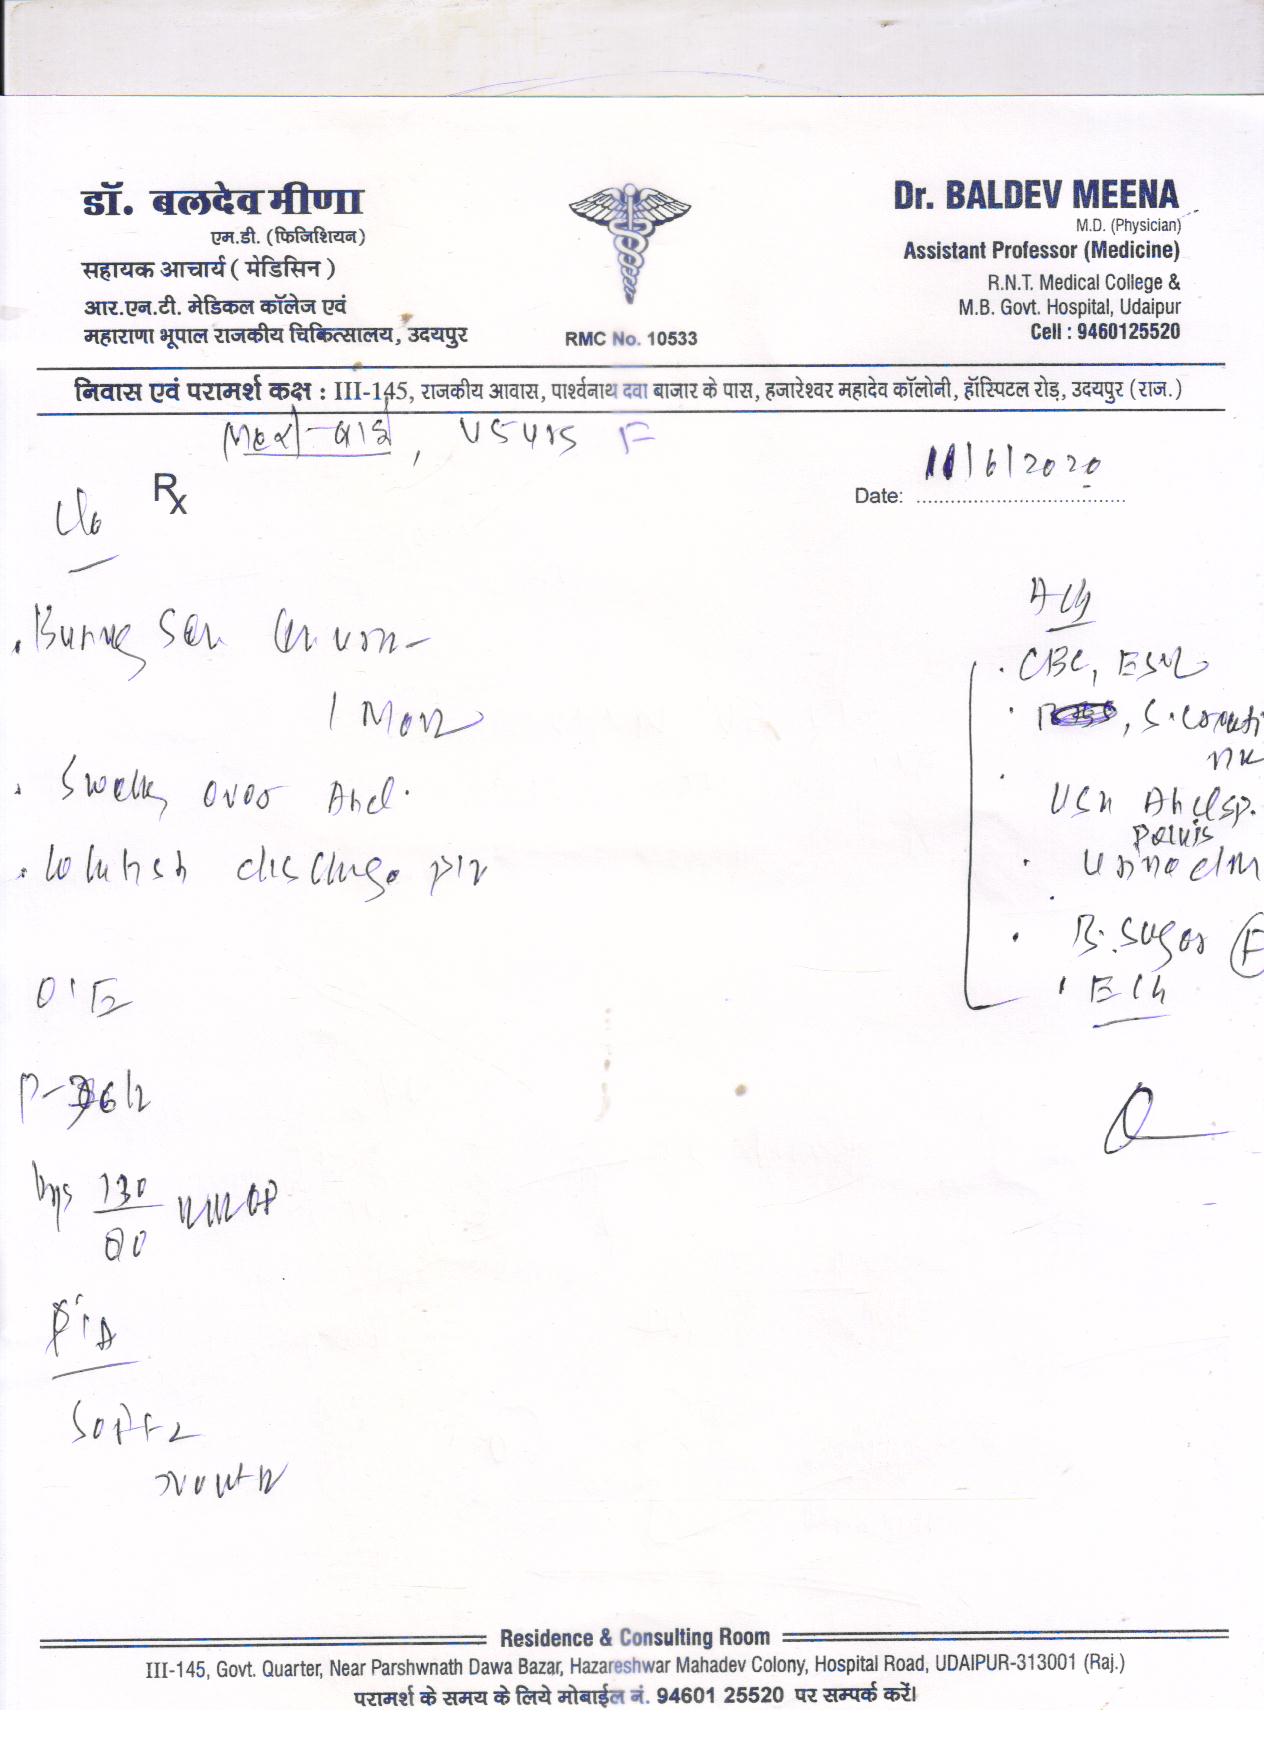 डॉ. बलदेव मीणा
एम.डी. (फिजिशियन)
सहायक आचार्य ( मेडिसिन )
आर.एन.टी. मेडिकल कॉलेज एवं
महाराणा भूपाल राजकीय चिकित्सालय, उदयपुर
RMC No. 10533
Dr. BALDEV MEENA
M.D. (Physician)
Assistant Professor (Medicine)
R.N.T. Medical College &
M.B. Govt. Hospital, Udaipur
Cell : 9460125520
निवास एवं परामर्श कक्ष : III-145, राजकीय आवास, पार्श्वनाथ दवा बाजार के पास, हजारेश्वर महादेव कॉलोनी, हॉस्पिटल रोड़, उदयपुर (राज.)
बाई, F
Rx
Date: 11/6/2020
C/o
. Burning
1 Mon
. Swelling over Abd.
. Whitish discharge P/V
O/E
130
80 mmHg
P/A
Soft
Adv
. CBC, ESR
. S.
USG Abd
Pelvis
. Urine
. B. Sugar (F
. ECG
Residence & Consulting Room
III-145, Govt. Quarter, Near Parshwnath Dawa Bazar, Hazareshwar Mahadev Colony, Hospital Road, UDAIPUR-313001 (Raj.)
परामर्श के समय के लिये मोबाईल नं. 94601 25520 पर सम्पर्क करें।